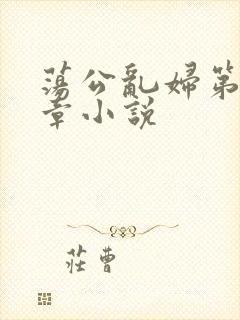 蕩公亂婦第
章小説
莊曹